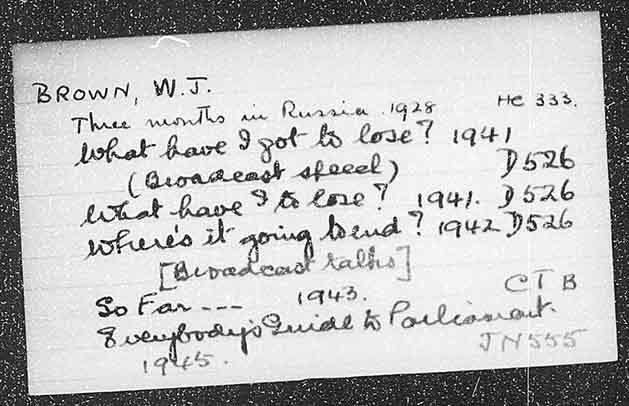 BROWN, W.J.
Three months in Russia. 1928 HC 333.
What have I got to lose? 1941
(Broadcast speech) D526
What have I to lose? 1941. D526
Where's it going to end? 1942 D526
[Broadcast talks]
So Far --- 1943. CTB
Everybody's Guide to Parliament.
1945. JN555